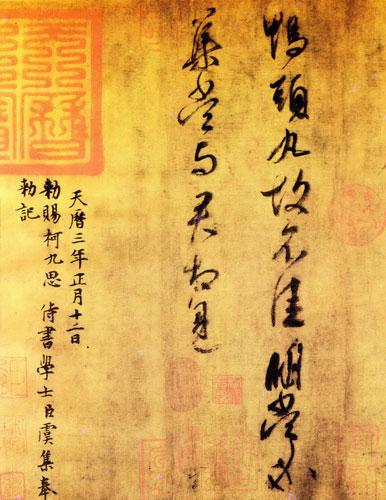 鴨頭丸故不佳明當必
集當与君相見
天曆三年正月十二日
勅賜柯九思侍書學士臣虞集奉
勅記